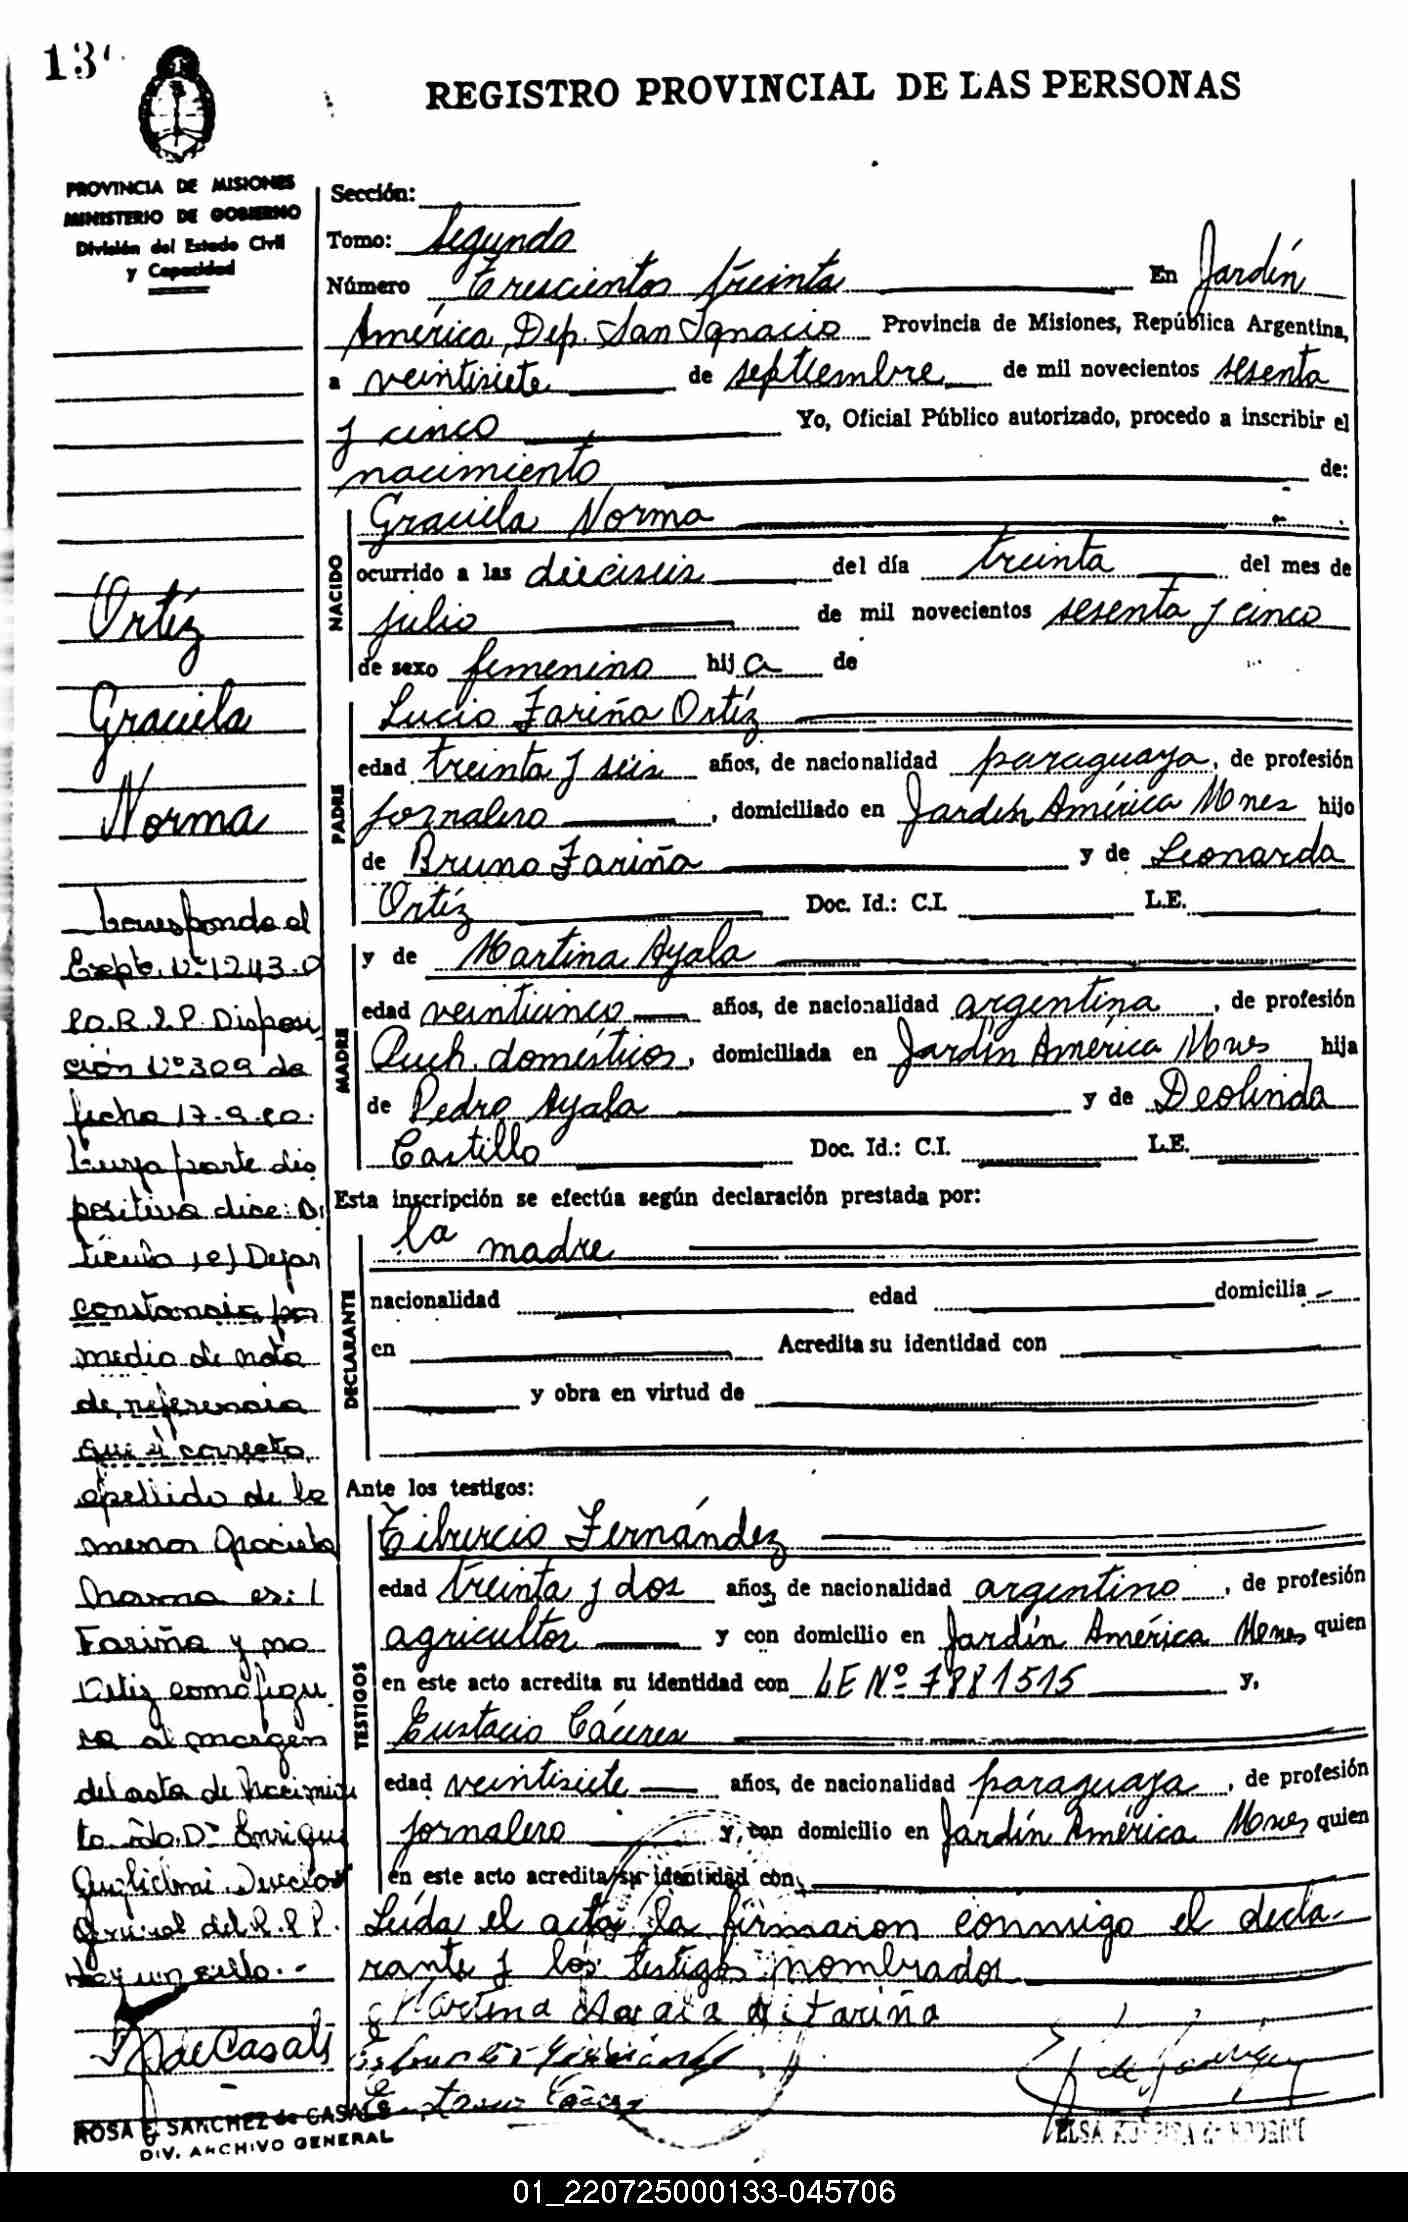 13
REGISTRO PROVINCIAL DE LAS PERSONAS
PROVINCIA DE MISIONES
MINISTERIO DE GOBIERNO
División del Estado Civil
y Capacidad
Sección:
Tomo: Segundo
Número Trescientos treinta En Jardín
América, Dep. San Ignacio Provincia de Misiones, República Argentina,
a veintisiete de septiembre de mil novecientos sesenta
y cinco Yo, Oficial Público autorizado, procedo a inscribir el
nacimiento de:
NACIDO
Graciela Norma
ocurrido a las dieciseis del día treinta del mes de
julio de mil novecientos sesenta y cinco
de sexo femenino hija de
PADRE
Lucio Fariña Ortíz
edad treinta y seis años, de nacionalidad paraguaya, de profesión
jornalero, domiciliado en Jardín América Mnes hijo
de Bruno Fariña y de Leonarda
Ortíz Doc. Id.: C.I. L.E.
MADRE
y de Martina Ayala
edad veinticinco años, de nacionalidad argentina, de profesión
Queh. domésticos, domiciliada en Jardín América Mnes hija
de Pedro Ayala y de Deolinda
Castillo Doc. Id.: C.I. L.E.
Esta inscripción se efectúa según declaración prestada por:
DECLARANTE
la madre
nacionalidad edad domicilia
en Acredita su identidad con
y obra en virtud de
Ante los testigos:
TESTIGOS
Tiburcio Fernández
edad treinta y dos años, de nacionalidad argentino, de profesión
agricultor y con domicilio en Jardín América Mnes quien
en este acto acredita su identidad con LE Nº 7881515 y,
Eustacio Cáceres
edad veintisiete años, de nacionalidad paraguaya, de profesión
jornalero y, con domicilio en Jardín América Mnes quien
en este acto acredita su identidad con,
Leída el acta, la firmaron conmigo el decla-
rante y los testigos nombrados
Martina Ayala de Fariña
Ortíz
Graciela
Norma
Corresponde al
Expte. Nº 1243-0
Disposi
ción Nº 309 de
fecha 17.9.80.
Cuya parte dis
positiva dice: Ar
tículo 1º) Dejar
constancia por
medio de nota
de referencia
que el correcto
apellido de la
menor Graciela
Norma es: 
Fariña y no
Ortiz como figu
ra al margen
del acta de Nacimien
to Fdo. Dr Enrique
Guglielmi Director
General del R.P.P.
Hay un sello.-
de Casals
ROSA E. SANCHEZ de CASALS
DIV. ARCHIVO GENERAL
ELSA
01_220725000133-045706